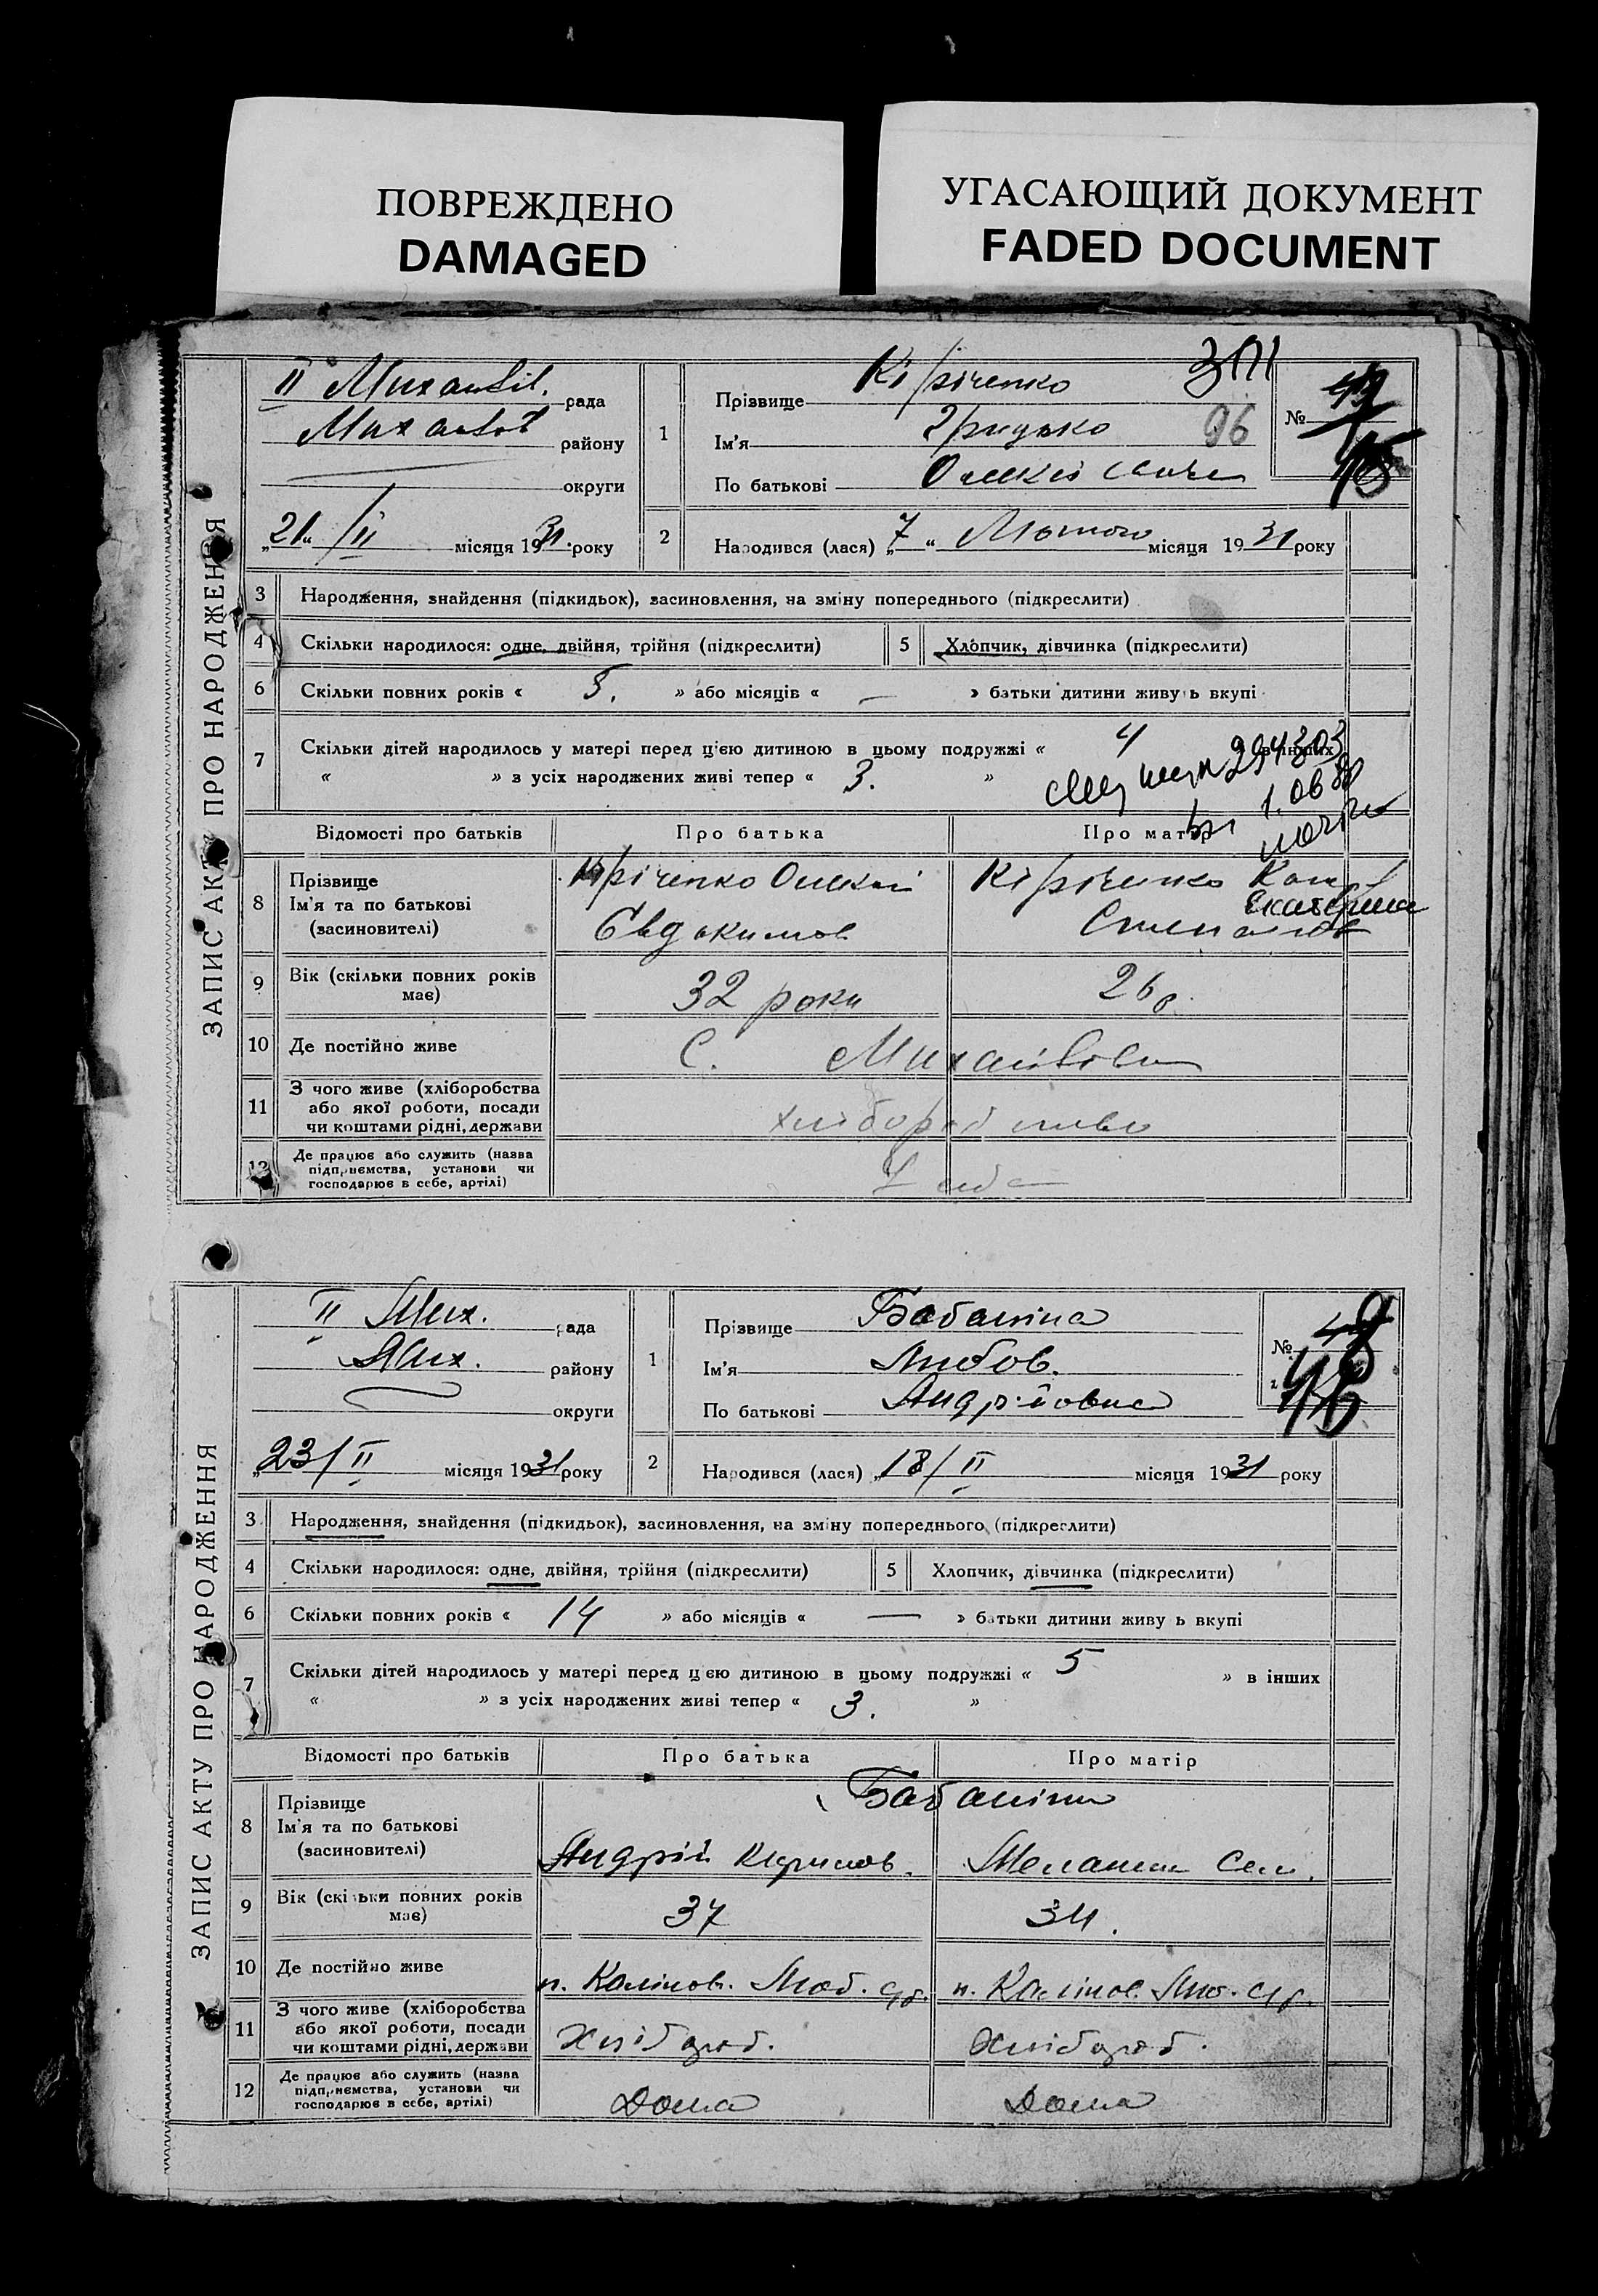 ПОВРЕЖДЕНО
DAMAGED
УГАСАЮЩИЙ ДОКУМЕНТ
FADED DOCUMENT
ЗАПИС АКТУ ПРО НАРОДЖЕННЯ
II Михайлів. рада
Михайлів району
округи
„21“ /II місяця 1931. року
1
Прізвище Кіріченко
Ім'я Грицько 96
По батькові Олексієвич
№ 49
45
2
Народився (лася) „7“ Лютого місяця 1931 року
3 Народження, знайдення (підкидьок), засиновлення, на зміну попереднього (підкреслити)
4 Скільки народилося: одне, двійня, трійня (підкреслити)
5 Хлопчик, дівчинка (підкреслити)
6 Скільки повних років « 5. » або місяців « — » батьки дитини живу ь вкупі
7 Скільки дітей народилось у матері перед цією дитиною в цьому подружжі « 4 в інших
« » з усіх народжених живі тепер « 3. »
Відомості про батьків Про батька Про матір
8 Прізвище
Ім'я та по батькові
(засновителі)
Кіріченко Олексій
Євдокимов
Кіріченко Кат
Екатерина
Степанов
9 Вік (скільки повних років має) 32 роки 26 р.
10 Де постійно живе С. Михайлівка
11 З чого живе (хліборобства
або якої роботи, посади
чи коштами рідні, держави
хліборобство
12 Де працює або служить (назва
підприємства, установи чи
господарює в себе, артілі)
ЗАПИС АКТУ ПРО НАРОДЖЕННЯ
II Мих. рада
Мих. району
округи
„23/II місяця 1931 року
1
Прізвище Бабаніна
Ім'я Любов.
По батькові Андрійовна
№ 49
46
2
Народився (лася) „18/II місяця 1931 року
3 Народження, знайдення (підкидьок), засиновлення, на зміну попереднього (підкреслити)
4 Скільки народилося: одне, двійня, трійня (підкреслити)
5 Хлопчик, дівчинка (підкреслити)
6 Скільки повних років « 14 » або місяців « — » батьки дитини живу ь вкупі
7 Скільки дітей народилось у матері перед цією дитиною в цьому подружжі « 5 » в інших
« » з усіх народжених живі тепер « 3. »
Відомості про батьків Про батька Про матір
8 Прізвище
Ім'я та по батькові
(засновителі)
Бабаніни
Андрій Кирилов. Меланія Сем.
9 Вік (скільки повних років має) 37 34.
10 Де постійно живе п. Калінов. п. Калінов.
11 З чого живе (хліборобства
або якої роботи, посади
чи коштами рідні, держави
Хлібороб. Хлібороб.
12 Де працює або служить (назва
підприємства, установи чи
господарює в себе, артілі)
Дома Дома